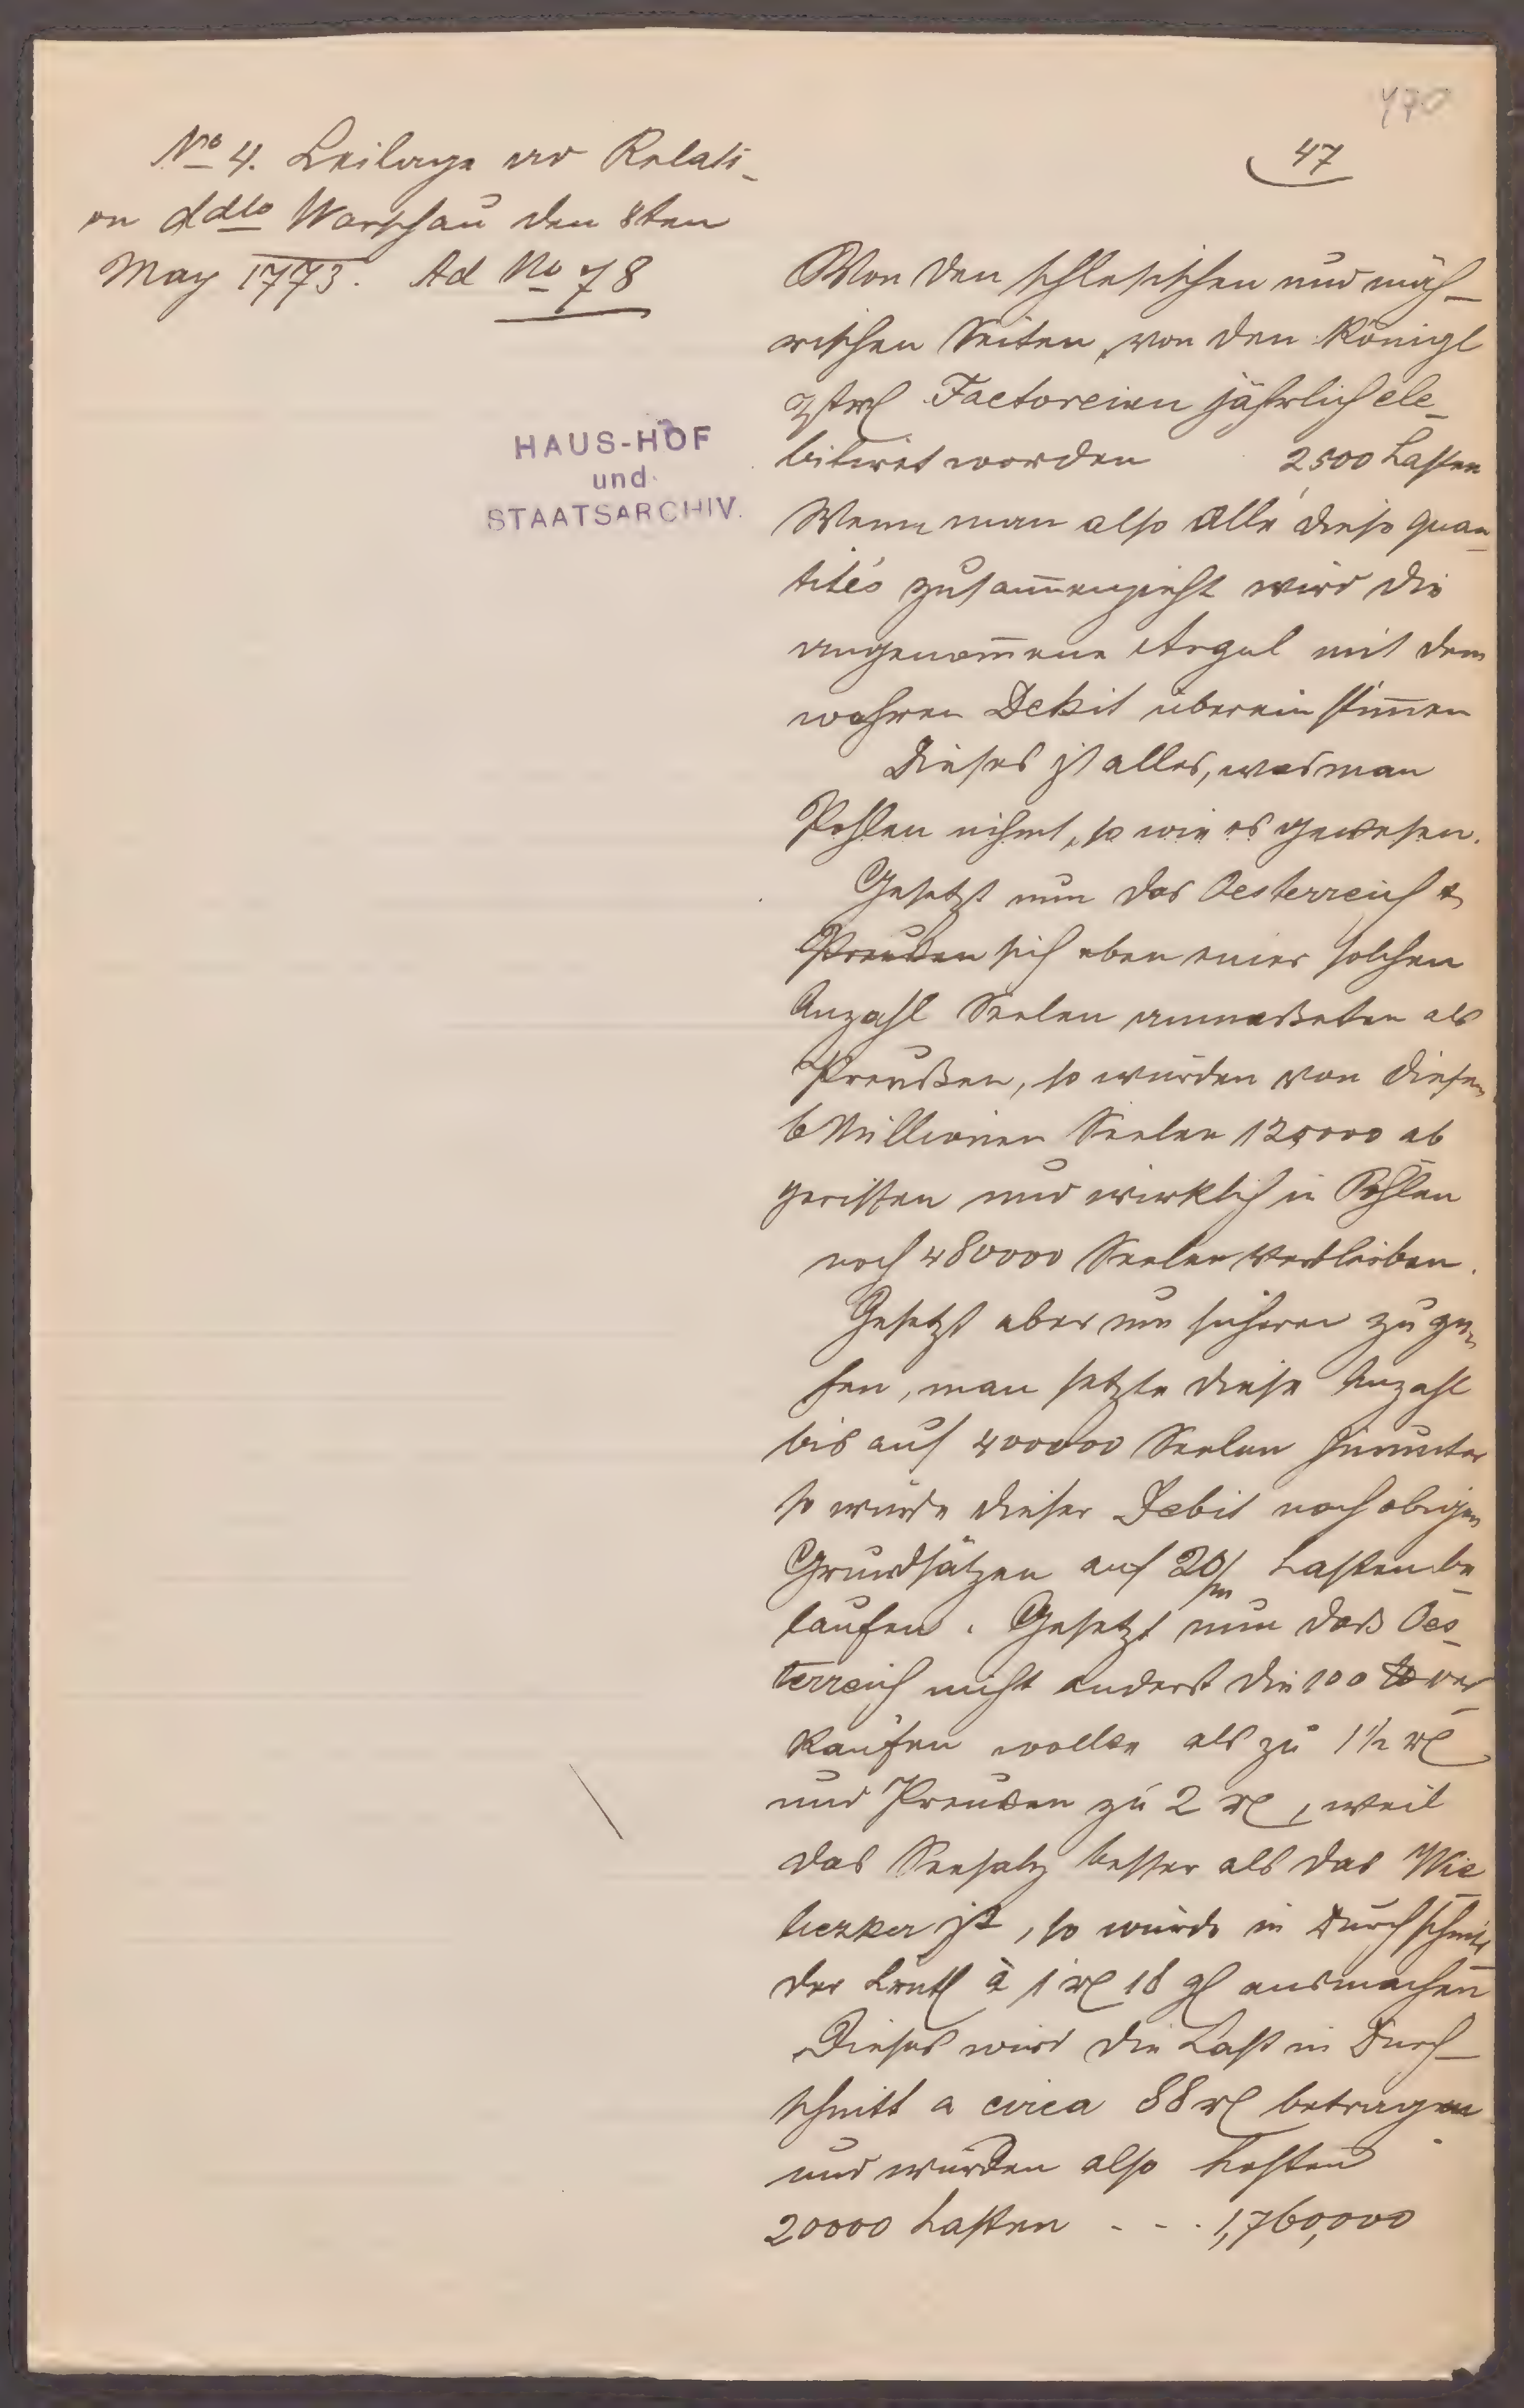 470
47
No 4. Beilage ad Relati-
on ddto Warschau den 8ten
May 1773. Ad No 78
HAUS-HOF
und
STAATSARCHIV.
Von den schlesischen und mäh-
rischen Seiten, von den Königl
Factoreien jährlich de-
bitiret worden 2500 Lasten
Wenn man also alle diese quan-
tités zusam̄enzieht wird die
angenom̄ene Anzal mit dem
wahren Debit übereinstim̄en
Dieses ist alles, was man
Pohlen nihmt, so wie es gewesen.
Gesetzt nun das Oesterreich &
Preußen sich eben einer solchen
Anzahl Seelen anmaßeten als
Preußen, so würden von diesen
6 Millionen Seelen 120000 ab
gerissen und wirklich in Pohlen
noch 480000 Seelen verbleiben.
Gesetzt aber um sicherer zu ge-
hen, man setzte diese Anzahl
bis auf 400000 Seelen herunter
so würde dieser Debit nach obigen
Grundsätzen auf 20/m Lasten be-
laufen. Gesetzt nun daß Oes-
terreich nicht anderst die 100 ℔ ver-
kaufen wollte als zu 1 1/2 rl
und Preußen zu 2 rl, weil
das Seesalz besser als das Wie-
liczker ist, so würde in Durchschnitt
der Centl à 1 rl 18 gl ausmachen
Dieses wird die Last in Durch-
schnitt a circa 88 rl betragen
und würden also kosten
20000 Lasten - - - 1,760,000